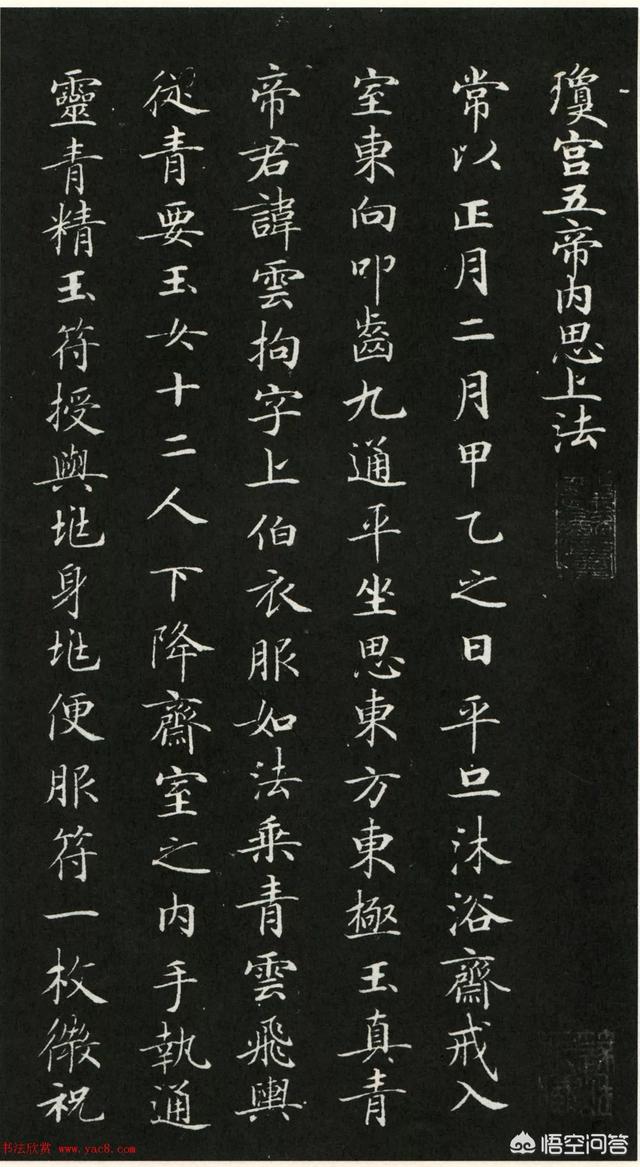 瓊宫五帝内思上法
常以正月二月甲乙之日平旦沐浴齋戒入
室東向叩齒九通平坐思東方東極玉真青
帝君諱雲拘字上伯衣服如法乗青雲飛輿
從青要玉女十二人下降齋室之内手執通
靈青精玉符授與兆身兆便服符一枚微祝
书法欣赏 www.yac8.com
悟空问答